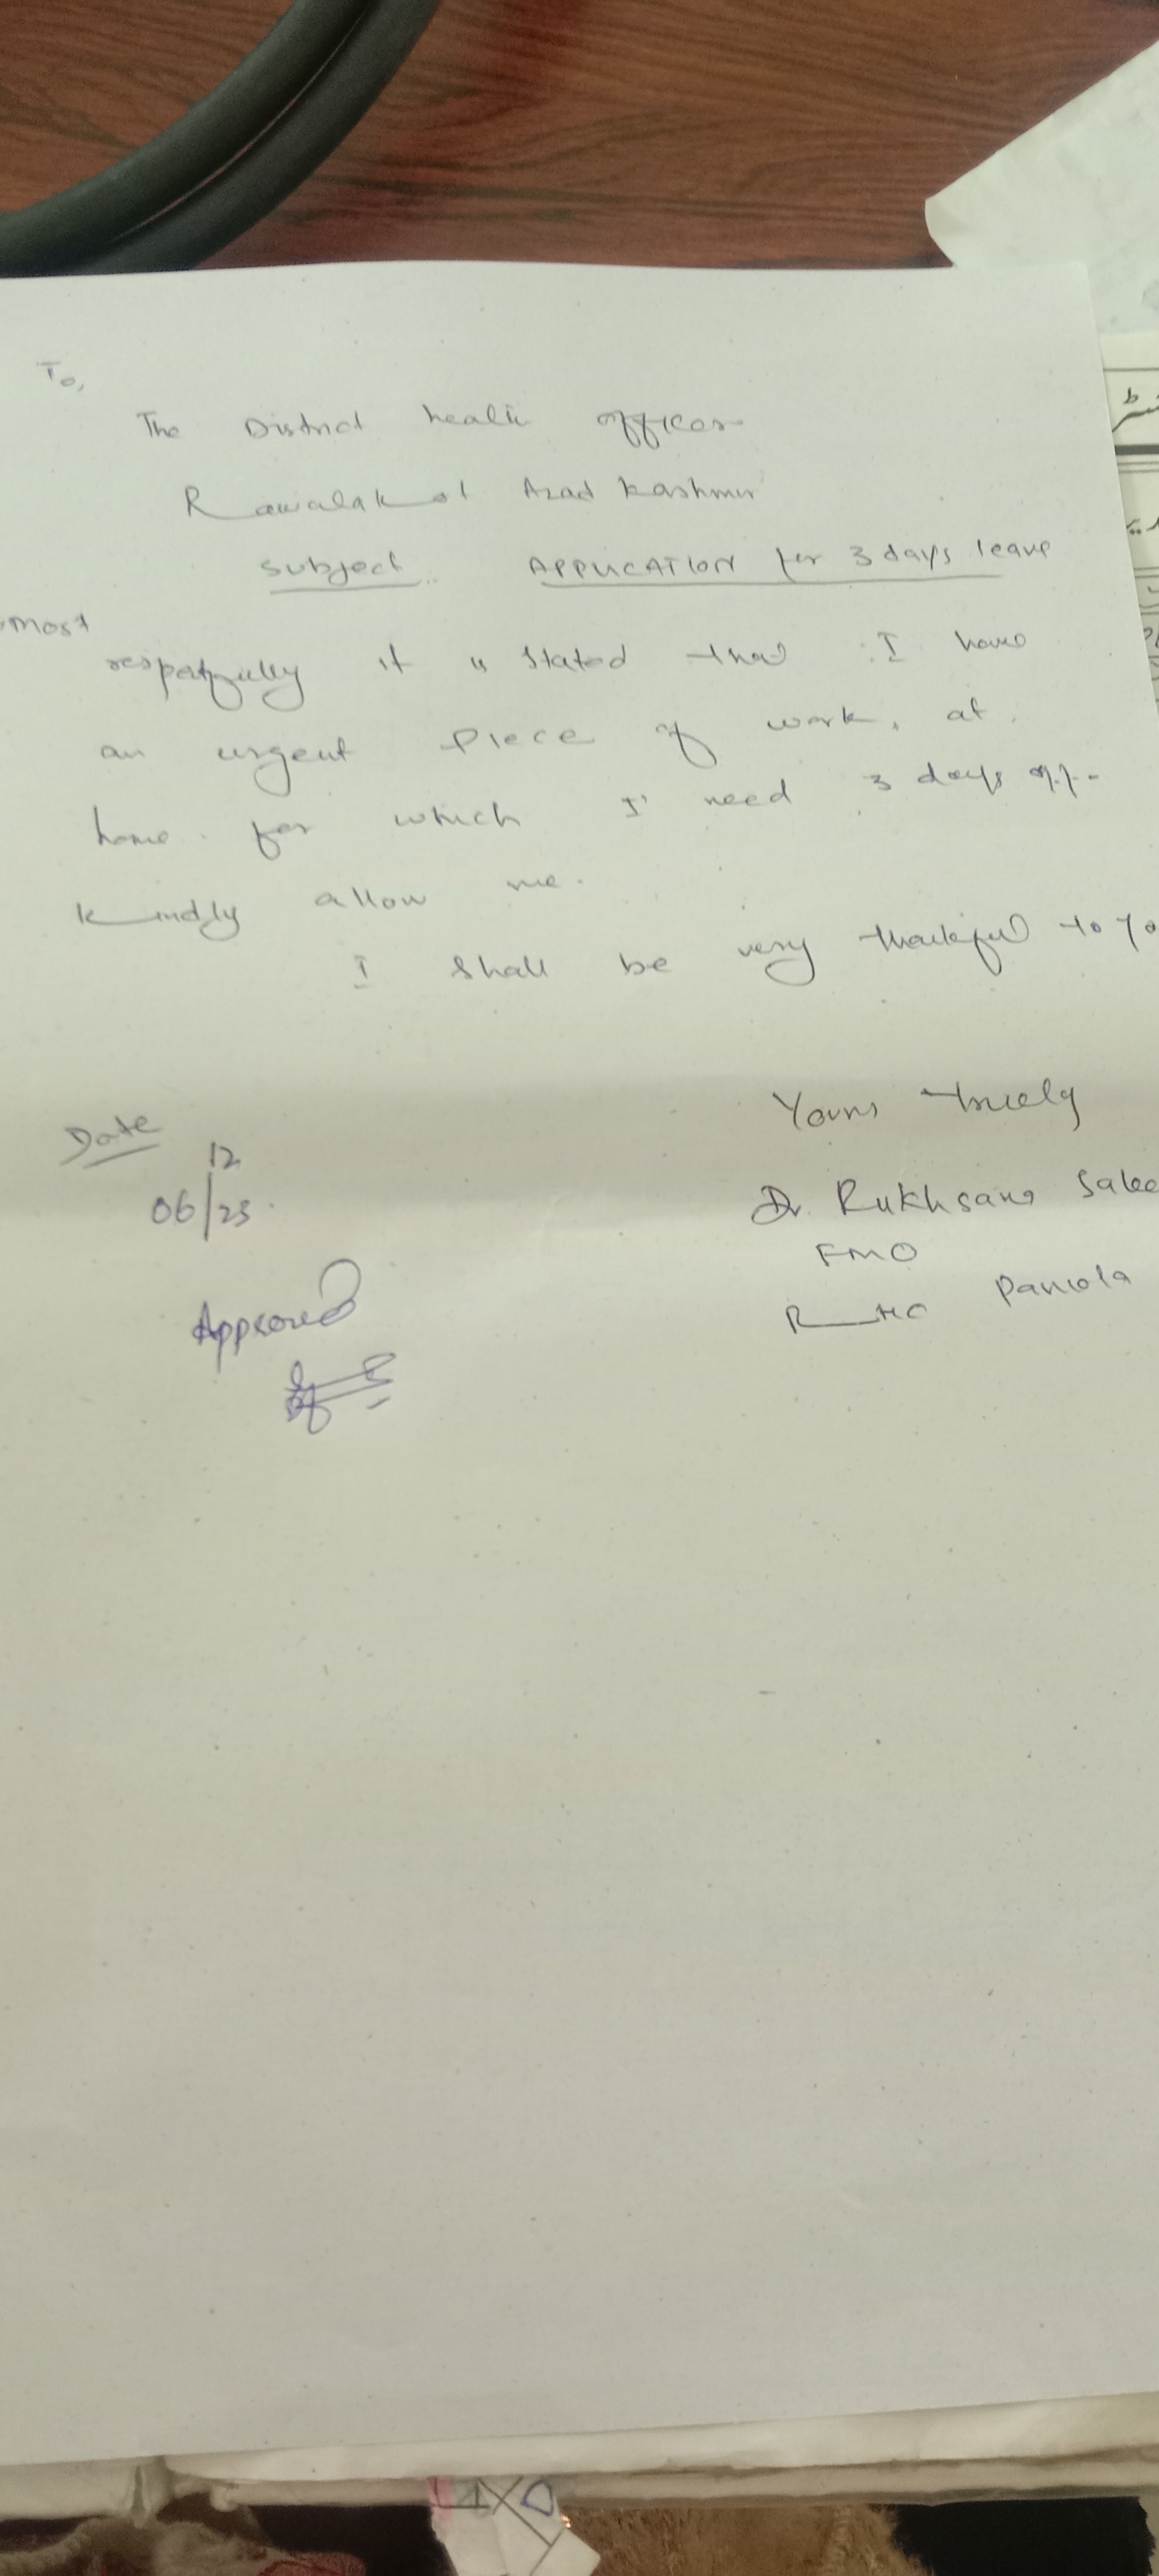 To,
The District health officer
Rawalakot Azad Kashmir
Subject. APPLICATION for 3 days leave
Most
respetfully it is stated that I have
an urgent piece of work, at
home for which I need 3 days off-
kindly allow me.
I shall be very thankful to yo
Yours truely
Date
12
06/23
Dr. Rukhsana Salee
FMO
RHC Paniola
Approved